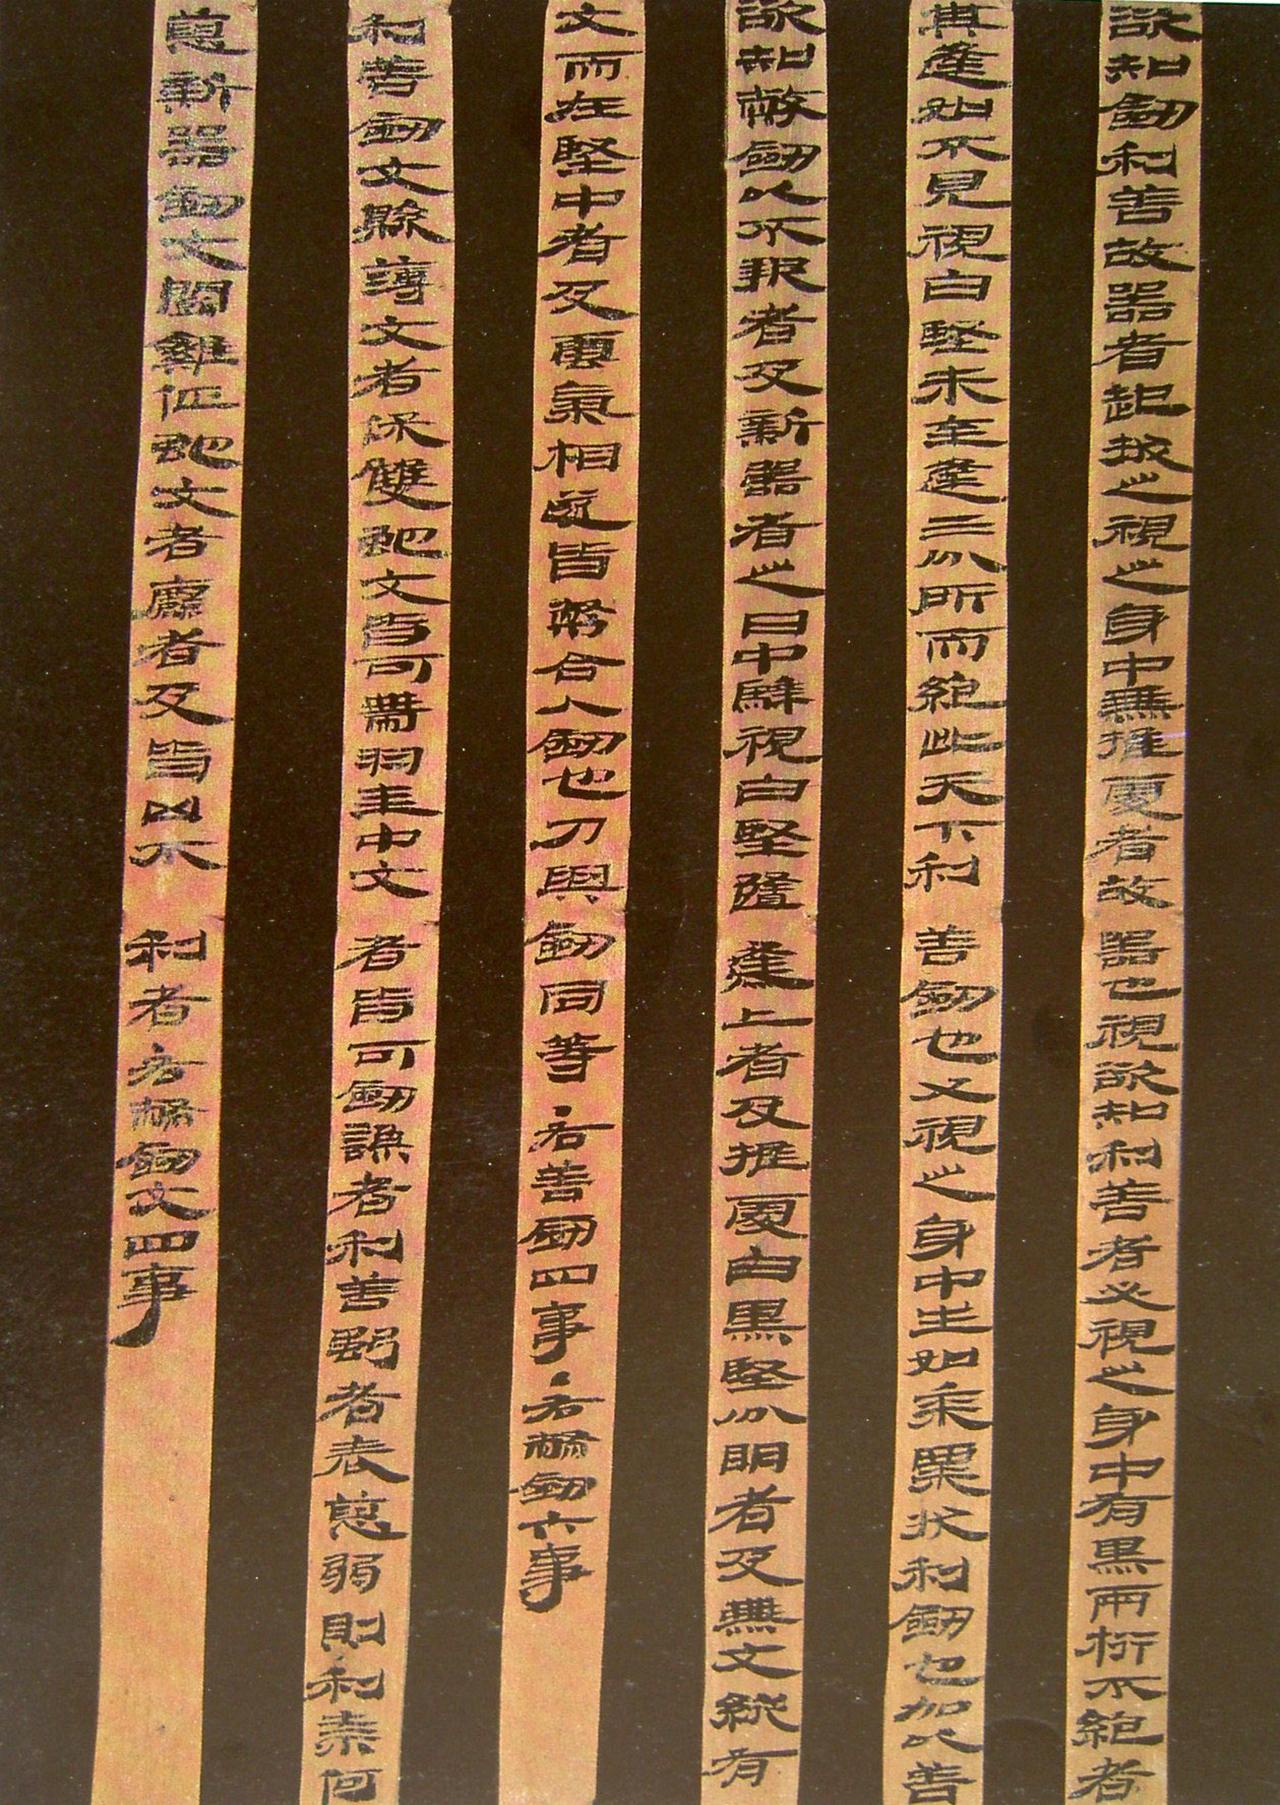 欲知劒利善故器者起拔之視之身中無推處者故器也視欲知利善者必視之身中有黑兩桁不絕者
其逢如不見視白堅未至逢三分所而絕此天下利善劒也又視之身中生如黍粟狀利劒也加以善
欲知幣劒以不報者及新器者之日中騂視白堅隨逢上者及推處白黑堅分明者及無文縱有
文而在堅中者及雲氣相遂皆幣合人劒也刀與劒同等・右善劒四事・右幣劒六事
利善劒文縣薄文者保雙蛇文皆可帶羽圭中文者皆可劒謙者利善強者表恿弱則利奈何
恿新器劒文鬭雞征蛇文者麤者及皆凶不利者右幣劒文四事